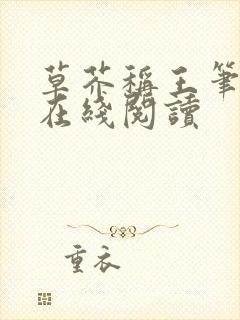 草芥稱王筆
在綫閱讀
重衣